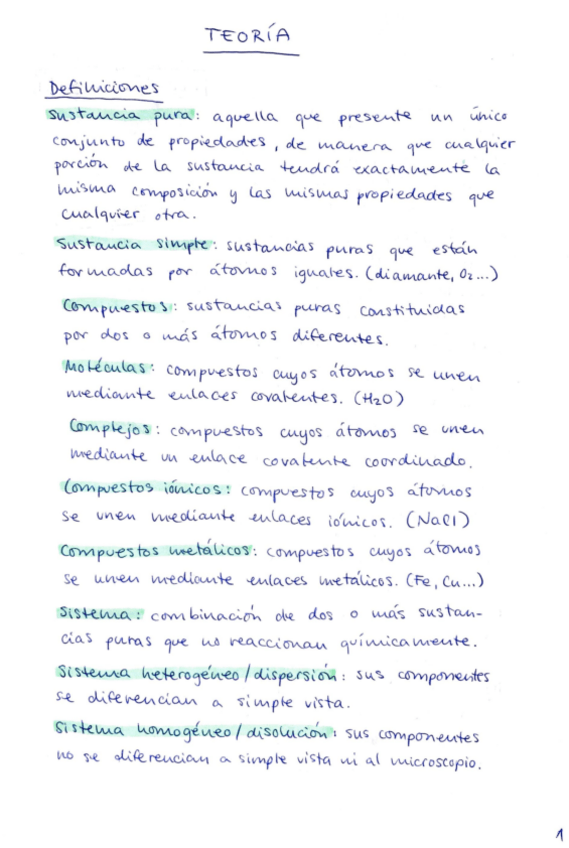 TEORÍA
Definiciones
Sustancia pura: aquella que presente un único
conjunto de propiedades, de manera que cualquier
porción de la sustancia tendrá exactamente la
misma composición y las mismas propiedades que
cualquier otra.
Sustancia simple: sustancias puras que están
formadas por átomos iguales. (diamante, O₂...)
Compuestos: sustancias puras constituidas
por dos o más átomos diferentes.
Moléculas: compuestos cuyos átomos se unen
mediante enlaces covalentes. (H₂O)
Complejos: compuestos cuyos átomos se unen
mediante un enlace covalente coordinado.
Compuestos iónicos: compuestos cuyos átomos
se unen mediante enlaces iónicos. (NaCl)
Compuestos metálicos: compuestos cuyos átomos
se unen mediante enlaces metálicos. (Fe, Cu...)
Sistema: combinación de dos o más sustan-
cias puras que no reaccionan químicamente.
Sistema heterogéneo/dispersión: sus componentes
se diferencian a simple vista.
Sistema homogéneo/disolución: sus componentes
no se diferencian a simple vista ni al microscopio.
1